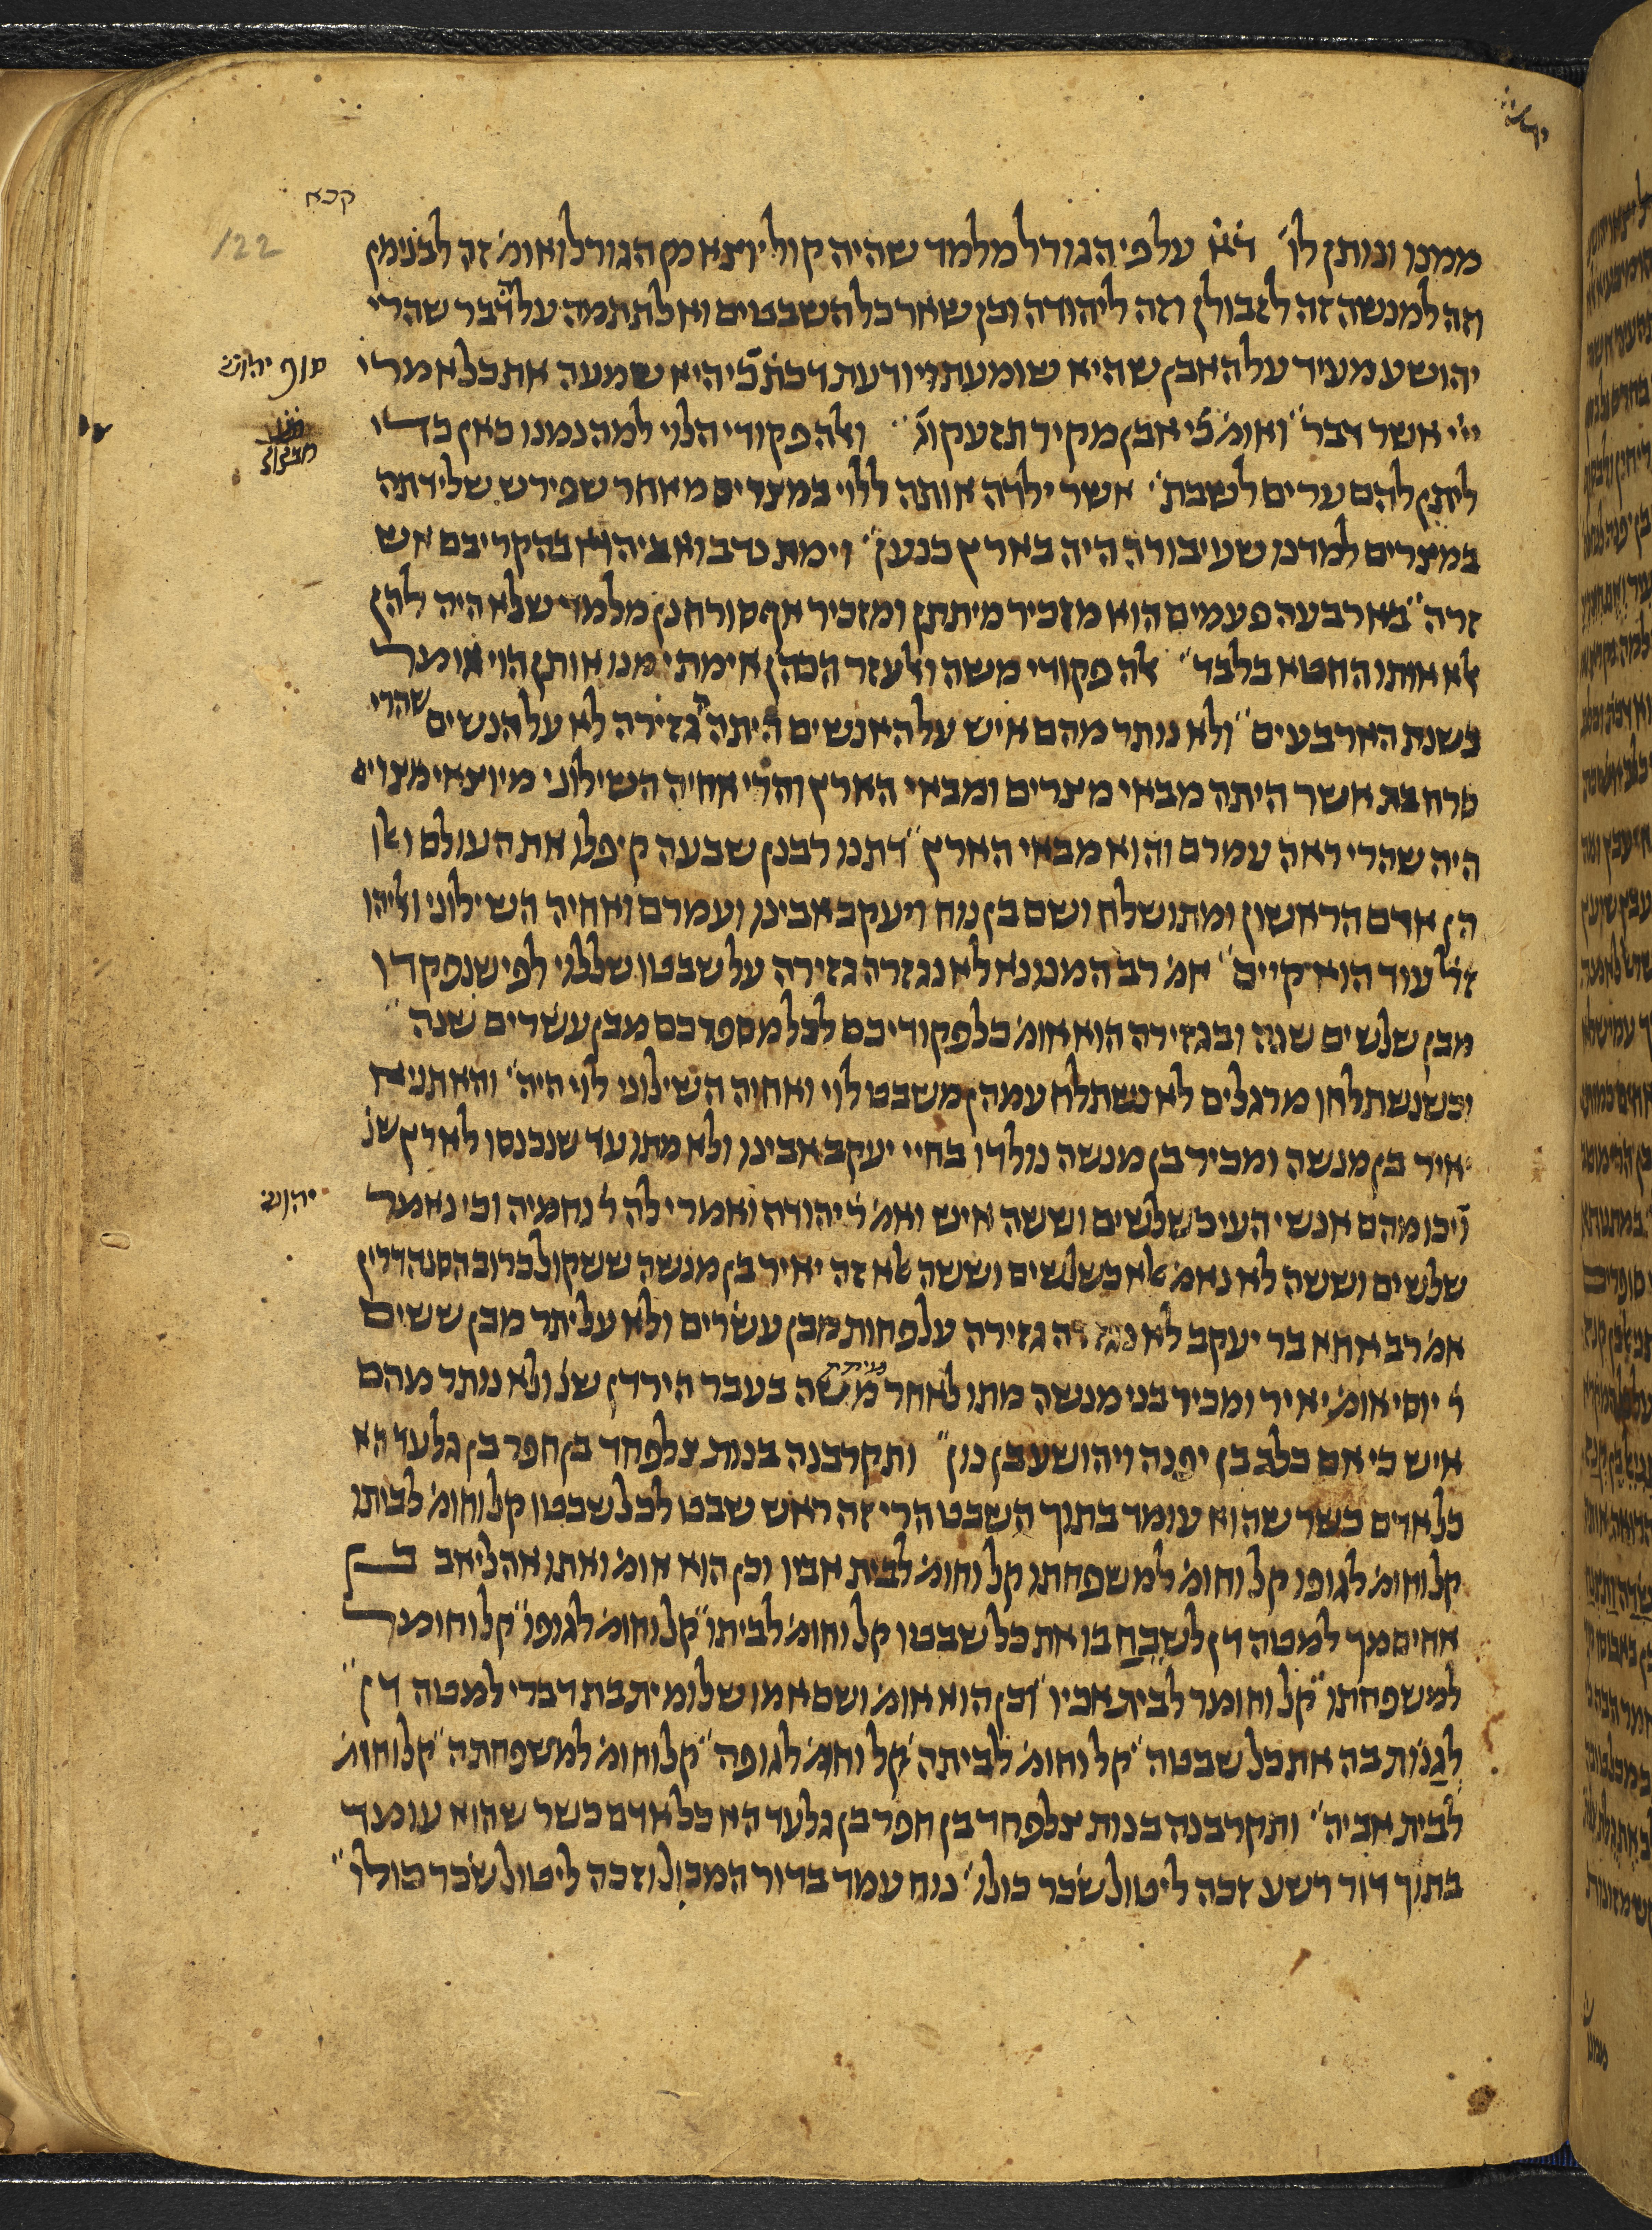 קכא
122
ממנו ונותן לו׳ ד׳א׳ על פי הגורל מלמד שהיה קול יוצא מן הגורל ואומ׳ זה לבנימן
וזה למנשה זה לזבולן וזה ליהודה וכן שאר כל השבטים ואל תתמה על הדבר שהרי
יהושע מעיד על האבן שהיא שומעת ויודעת דכת׳ כי היא שמעה את כל אמרי
סוף יהוש׳
ייי אשר דבר״ ואומ׳ כי אבן מקיר תזעק וג׳״ ואלה פקודי הלוי למה נמנו כאן כדי
ליתן להם ערים לשבת׳׳ אשר ילדה אותה ללוי במצרים מאחר שפירש שלידתה
במצרים למדנו שעיבורה היה בארץ כנען׳׳ וימת נדב ואביהוא בהקריבם אש
זרה״ בארבעה פעמים הוא מזכיר מיתתן ומזכיר אף סורחנן מלמד שלא היה להן
אלא אותו החטא בלבד״ אלה פקודי משה ואלעזר הכהן אימתי מנו אותן הוי אומר
בשנת הארבעים״ ולא נותר מהם איש על האנשים היתה גזירה לא על הנשים שהרי
סרח בת אשר היתה מבאי מצרים ומבאי הארץ והרי אחיה השילוני מיוצאי מצרים
היה שהרי ראה עמרם והוא מבאי הארץ״ דתנו רבנן שבעה קיפלו את העולם ואלו
הן אדם הראשון ומתושלח ושם בן נוח ויעקב אבינו ועמרם ואחיה השילוני ואליהו
ז׳ל עוד הוא קיים׳׳ אמ׳ רב המנונא לא נגזרה גזירה על שבטו של לוי לפי שנפקדו
מבן שלשים שנה ובגזירה הוא אומ׳ כל פקודיכם לכל מספרכם מבן עשרים שנה״
וכשנשתלחו מרגלים לא נשתלח עמהן משבט לוי ואחיה השילוני לוי היה׳׳ והא תניא
יאיר בן מנשה ומכיר בן מנשה נולדו בחיי יעקב אבינו ולא מתו עד שנכנסו לארץ שנ׳
ויכו מהם אנשי העי כשלשים וששה איש ואמ׳ ר׳ יהודה ואמרי לה ר׳ נחמיה וכי נאמר
יהוש׳
שלשים וששה לא נאמ׳ אלא כשלשים וששה אלא זה יאיר בן מנשה ששקול כרוב הסנהדרין
אמ׳ רב אחא בר יעקב לא נגזרה גזירה על פחות מבן עשרים ולא על יתר מבן ששים
ר׳ יוסי אומ׳ יאיר ומכיר בני מנשה מתו לאחר מיתת משה בעבר הירדן שנ׳ ולא נותר מהם
איש כי אם כלב בן יפנה ויהושע בן נון״ ותקרבנה בנות צלפחד בן חפר בן גלעד הא
כל אדם כשר שהוא עומד בתוך השבט הרי זה ראש שבט לכל שבטו קל וחומ׳ לביתו
קל וחומ׳ לגופו קל וחומ׳ למשפחתו קל וחומ׳ לבית אביו וכן הוא אומ׳ ואתו אהליאב בן
אחיסמך למטה דן לשבח בו את כל שבטו קל וחומ׳ לביתו״ קל וחומ׳ לגופו״ קל וחומר
למשפחתו״ קל וחומר לבית אביו״ וכן הוא אומ׳ ושם אמו שלומית בת דברי למטה דן״
לגנות בה את כל שבטה״ קל וחומ׳ לביתה״ קל וחומ׳ לגופה״ קל וחומ׳ למשפחתה״ קל וחומ׳
לבית אביה״ ותקרבנה בנות צלפחד בן חפר בן גלעד הא כל אדם כשר שהוא עומד
בתוך דור רשע זכה ליטול שכר כולו׳׳ נוח עמד בדור המבול וזכה ליטול שכר כולו״